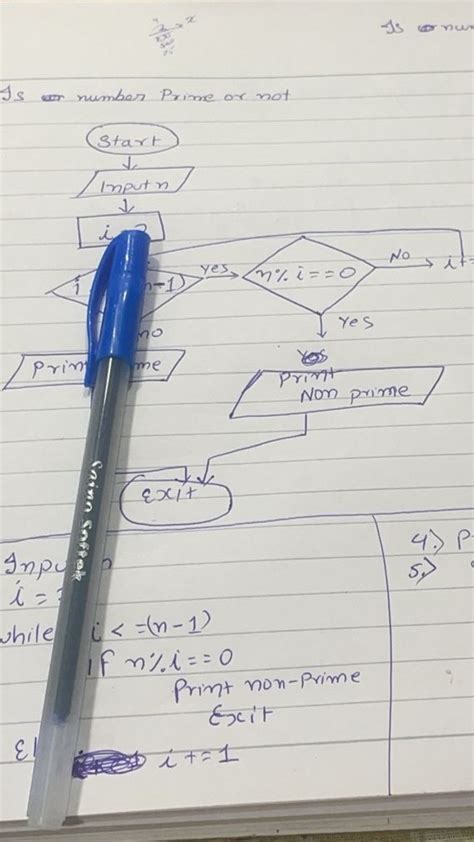 Is num
Is number Prime or not
Start
Input n
i
i n-1) yes n% i==0 No i+=
no yes
Prin me
Print
Non prime
Exit
Saino Softek
Inpu
i =
while i <=(n-1)
if n% i==0
Print non-prime
Exit
El i+=1
4.) P
5.)